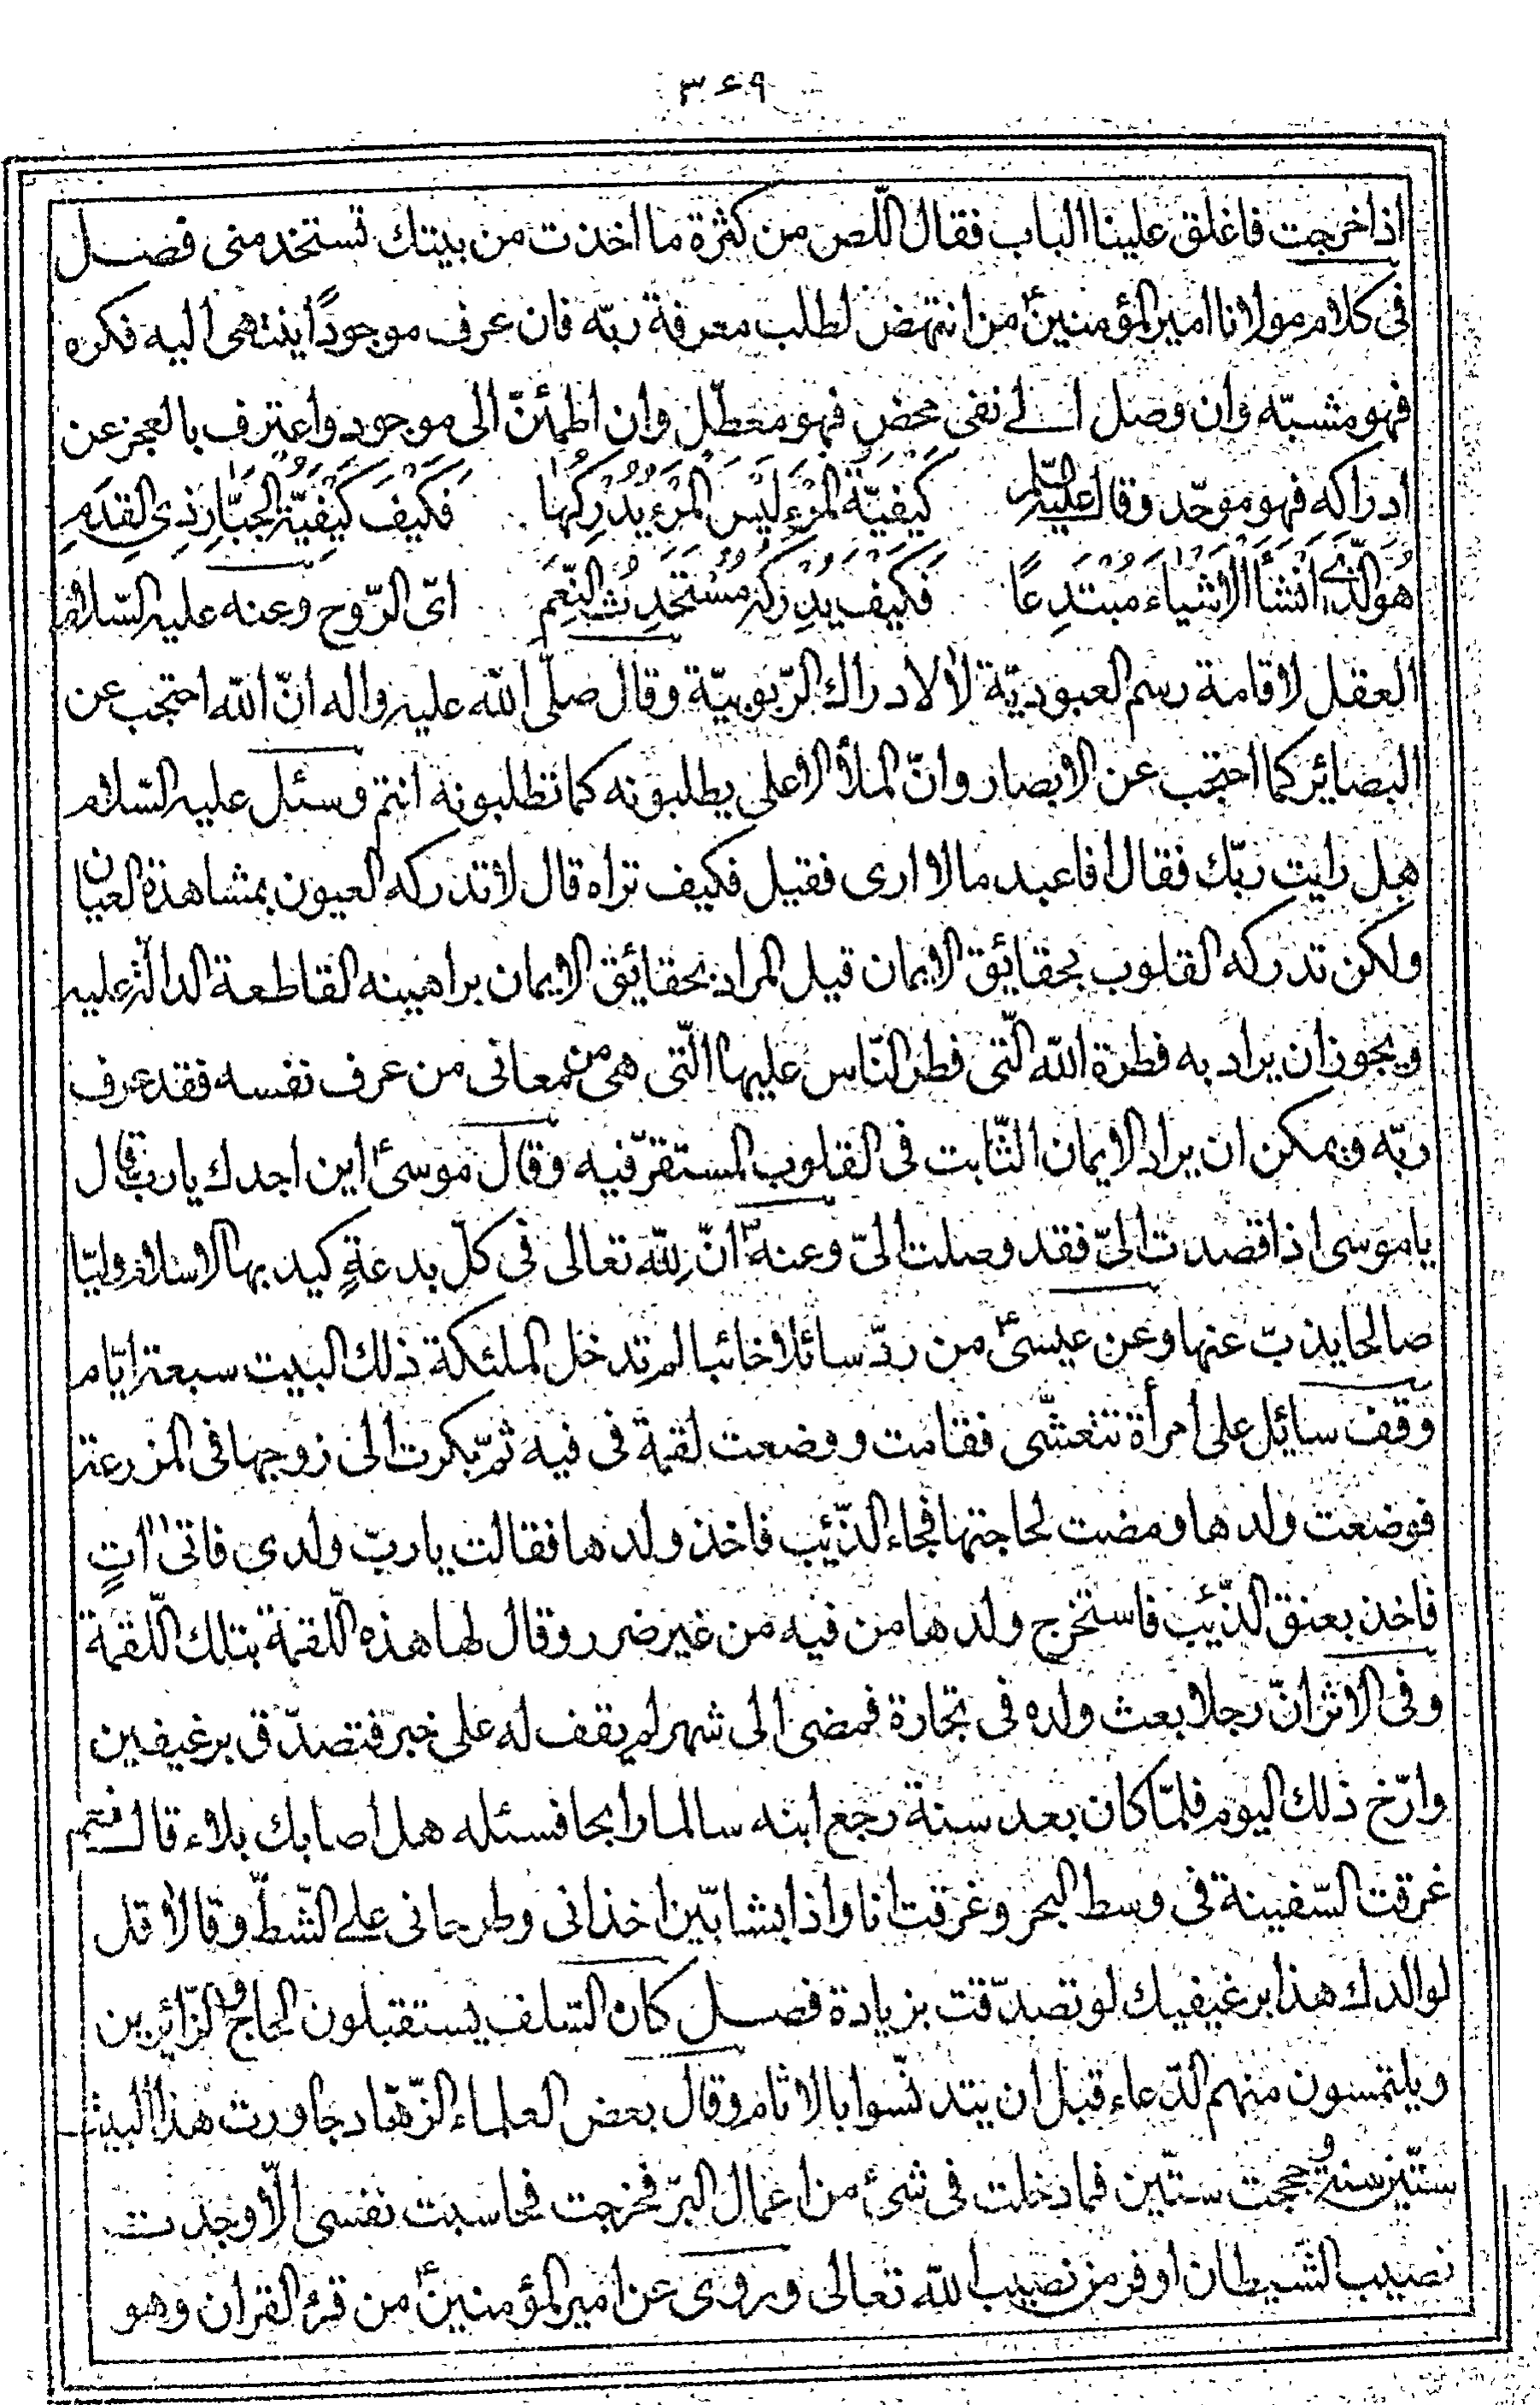 ۳۶۹
اذا خرجت فاغلق علينا الباب فقال اللّص من كثرة ما اخذت من بيتك تستخدمنى فصل
فى كلام مولانا امير المؤمنينؑ من انتهض لطلب معرفة ربّه فان عرف موجوداً ينتهى اليه فكره
فهو مشبّه وان وصل الى نفى محض فهو معطّل وان اطمئنّ الى موجود واعترف بالعجز عن
ادراكه فهو موحّد وقال عليه السّلام كَيْفِيَّةُ الْمَرْءِ لَيْسَ الْمَرْءُ يُدْرِكُهٰا فَكَيْفَ كَيْفِيَّةُ الْجَبّٰارِ ذِى الْقِدَمِ
هُوَ الَّذِى اَنْشَأَ الْاَشْيٰاءَ مُبْتَدِعًا فَكَيْفَ يُدْرِكُهُ مُسْتَحْدَثُ النَّسَمِ اى الرّوح وعنه عليه السّلام
العقل لاقامة رسم العبوديّة لا لادراك الرّبوبيّة وقال صلّى اللّه عليه واله انّ اللّه احتجب عن
البصائر كما احتجب عن الابصار وانّ الملأ الاعلى يطلبونه كما تطلبونه انتم وسئل عليه السّلام
هل رايت ربّك فقال افاعبد ما لا ارى فقيل فكيف تراه قال لا تدركه العيون بمشاهدة العيان
ولكن تدركه القلوب بحقائق الايمان قيل المراد بحقائق الايمان براهينه القاطعة الدالّة عليه
ويجوز ان يراد به فطرة اللّه الّتى فطر النّاس عليها الّتى هى من معانى من عرف نفسه فقد عرف
ربّه ويمكن ان يراد الايمان الثّابت فى القلوب المستقرّ فيه وقال موسىؑ اين اجدك يا ربّ قال
يا موسى اذا قصدت الىّ فقد وصلت الىّ وعنهؑ انّ للّه تعالى فى كلّ بدعةٍ كيد بها الاسلام وليّا
صالحا يذبّ عنها وعن عيسىؑ من ردّ سائلا خائبا لم تدخل الملئكة ذلك البيت سبعة ايّام
وقف سائل على امرأة تتعشّى فقامت ووضعت لقمة فى فيه ثمّ بكرت الى زوجها فى المزرعة
فوضعت ولدها ومضت لحاجتها فجاء الذّئب فاخذ ولدها فقالت يا ربّ ولدى فاتى اتٍ
فاخذ بعنق الذّئب فاستخرج ولدها من فيه من غير ضرر وقال لها هذه اللّقمة بتلك اللّقمة
وفى الاثر انّ رجلا بعث ولده فى تجارة فمضى الى شهر لم يقف له على خبر فتصدّق برغيفين
وارّخ ذلك اليوم فلمّا كان بعد سنة رجع ابنه سالما رابحا فسئله هل اصابك بلاء قال نعم
غرقت السّفينة فى وسط البحر وغرقت انا واذا بشابّين اخذانى وطرحانى على الشّطّ وقالا قل
لوالدك هذا برغيفيك لو تصدّقت بزيادة فصل كان السّلف يستقبلون الحاج والزّائرين
ويلتمسون منهم الدّعاء قبل ان يتدنّسوا بالاثام وقال بعض العلماء الزّهّاد جاورت هذا البيت
ستّين سنة وحججت ستّين فما دخلت فى شئ من اعمال البرّ فخرجت فحاسبت نفسى الّا وجدت
نصيب الشّيطان اوفر من نصيب اللّه تعالى وروى عن امير المؤمنينؑ من قرء القران وهو